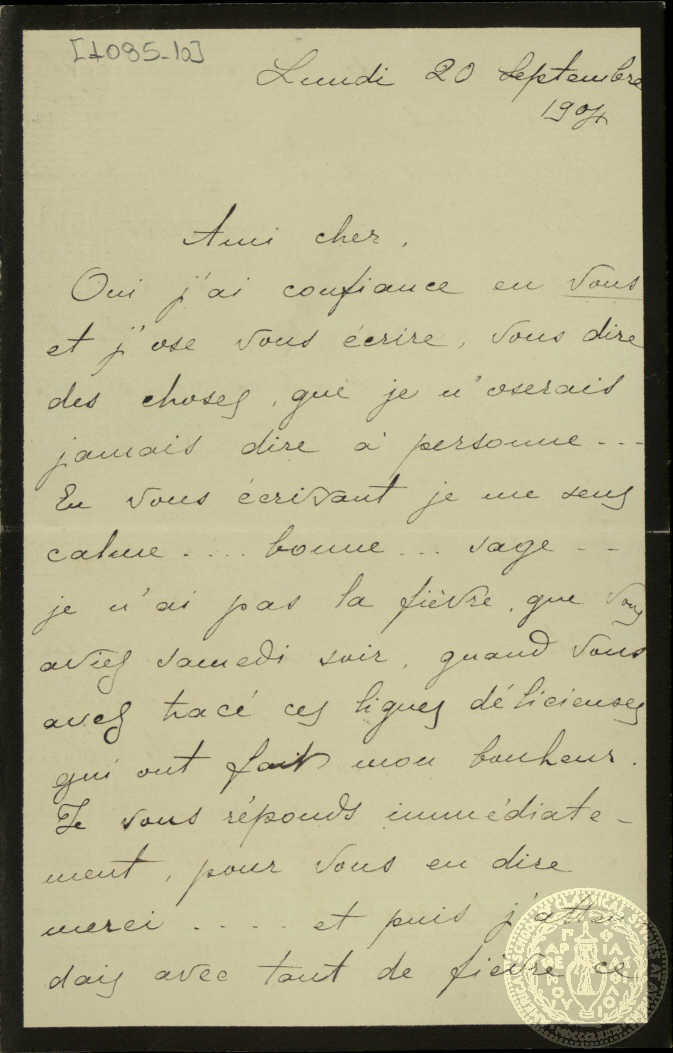 [1085-10]
Lundi 20 Septembre
1904
Ami cher,
Oui j'ai confiance en vous
et j'ose vous écrire, vous dire
des choses, que je n'oserais
jamais dire à personne ---
En vous écrivant je me sens
calme .... bonne ... sage --
je n'ai pas la fièvre, que vous
aviez samedi soir, quand vous
avez tracé ces lignes délicieuses
qui ont fait mon bonheur.
Je vous réponds immédiate-
ment, pour vous en dire
merci ..... et puis j'atten
dais avec tant de fièvre ce